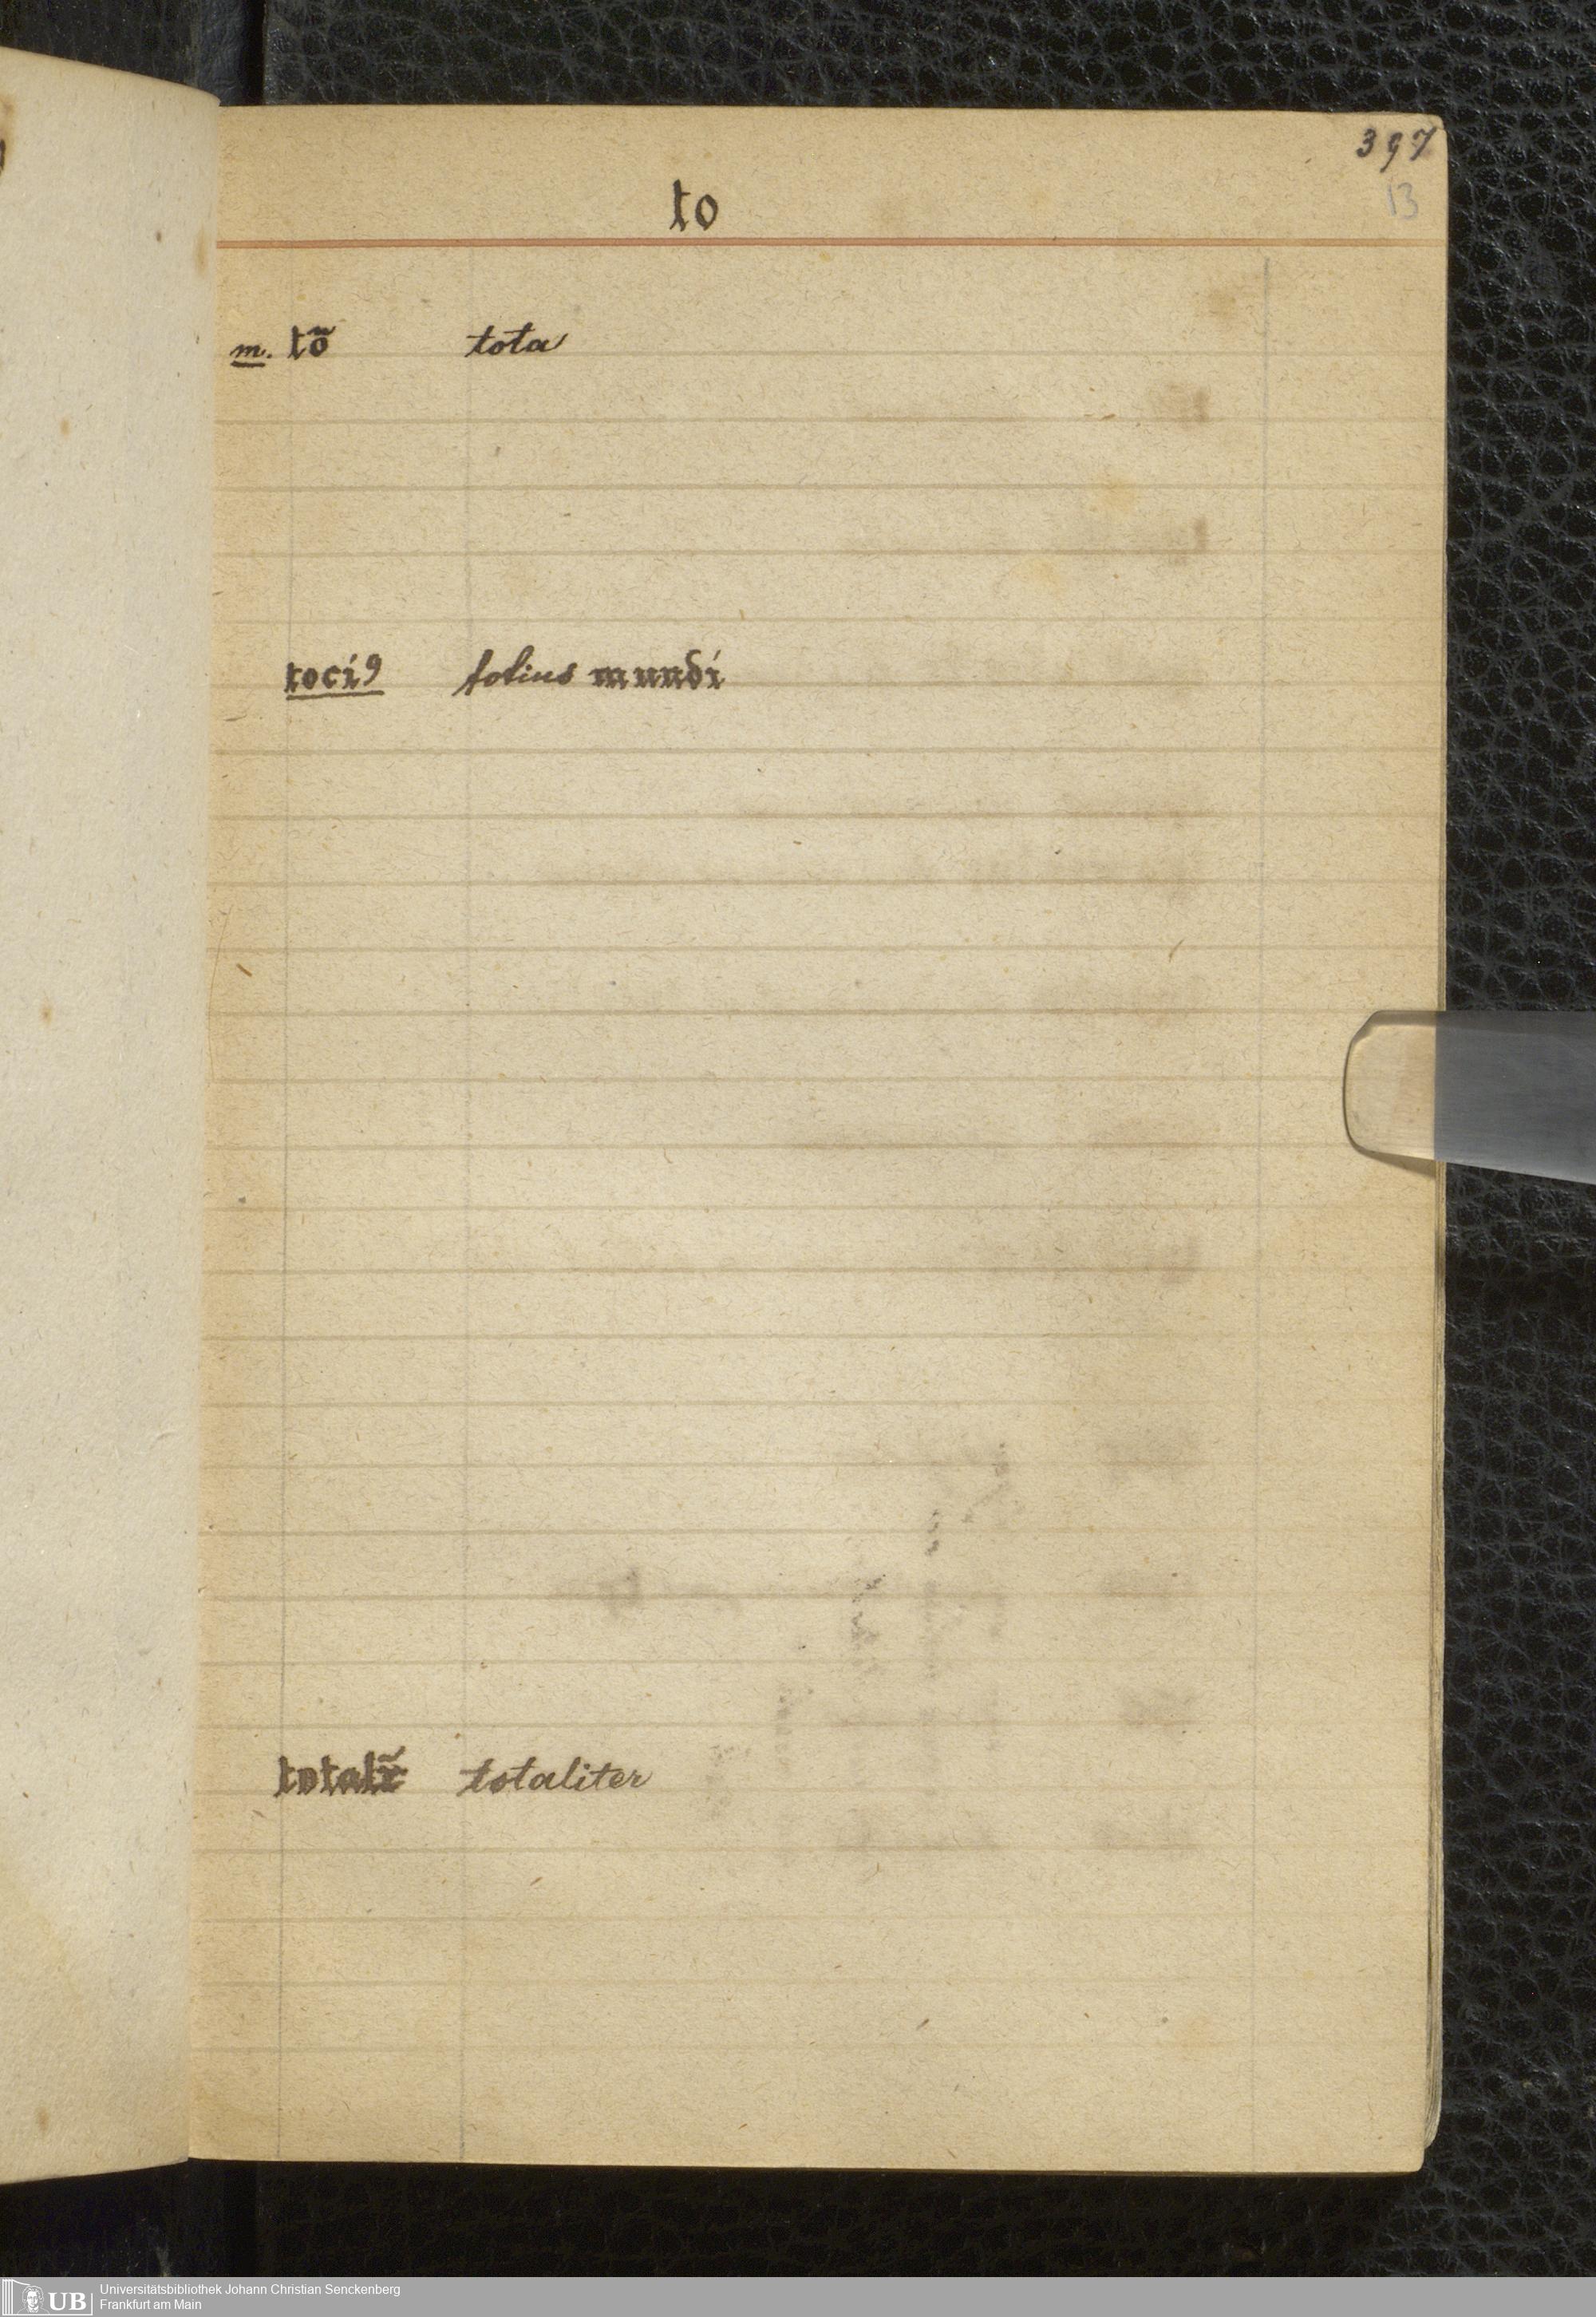 397
13
to
m. tõ tota
tociꝰ totius mundi
totalr̃ totaliter
UB Universitätsbibliothek Johann Christian Senckenberg
Frankfurt am Main